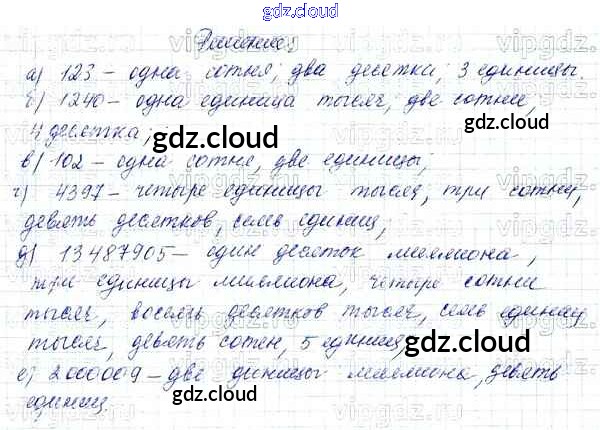 gdz.cloud
Решение:
а) 123 – одна сотня, два десятки, 3 единицы.
б) 1240 – одна единица тысяч, две сотни,
4 десятка;
gdz.cloud
в) 102 – одна сотня, две единицы,
г) 4397 – четыре единицы тысяч, три сотни,
девять десятков, семь единиц,
gdz.cloud
д) 13487905 – один десяток миллиона,
три единицы миллиона, четыре сотни
тысяч, восемь десятков тысяч, семь единиц
тысяч, девять сотен, 5 единиц,
gdz.cloud
е) 2000009 – две единицы миллиона, девять
единиц.
gdz.cloud